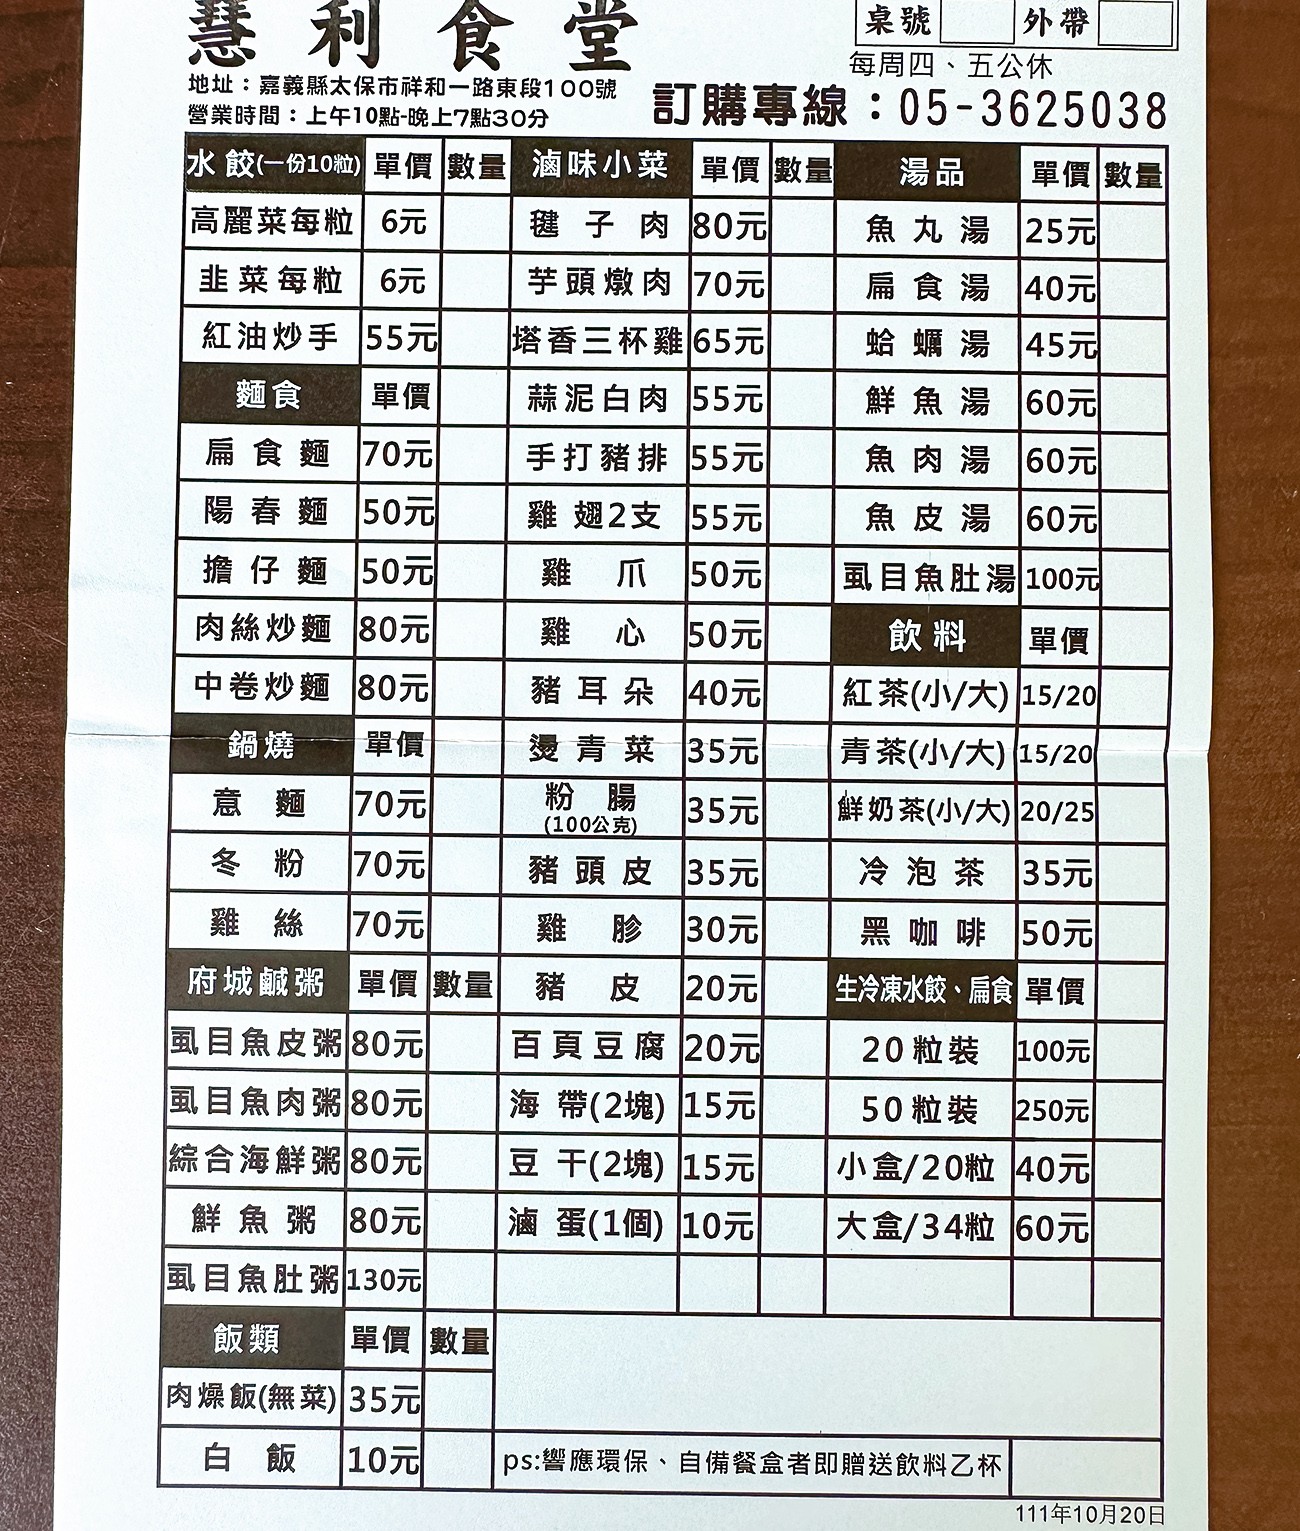 慧利食堂
桌號 外帶
每周四、五公休
地址：嘉義縣太保市祥和一路東段100號
營業時間：上午10點-晚上7點30分
訂購專線：05-3625038
水餃(一份10粒) 單價 數量
高麗菜每粒 6元
韭菜每粒 6元
紅油炒手 55元
麵食 單價
扁食麵 70元
陽春麵 50元
擔仔麵 50元
肉絲炒麵 80元
中卷炒麵 80元
鍋燒 單價
意麵 70元
冬粉 70元
雞絲 70元
府城鹹粥 單價 數量
虱目魚皮粥 80元
虱目魚肉粥 80元
綜合海鮮粥 80元
鮮魚粥 80元
虱目魚肚粥 130元
飯類 單價 數量
肉燥飯(無菜) 35元
白飯 10元
滷味小菜 單價 數量
毽子肉 80元
芋頭燉肉 70元
塔香三杯雞 65元
蒜泥白肉 55元
手打豬排 55元
雞翅2支 55元
雞爪 50元
雞心 50元
豬耳朵 40元
燙青菜 35元
粉腸 35元
(100公克)
豬頭皮 35元
雞胗 30元
豬皮 20元
百頁豆腐 20元
海帶(2塊) 15元
豆干(2塊) 15元
滷蛋(1個) 10元
湯品 單價 數量
魚丸湯 25元
扁食湯 40元
蛤蠣湯 45元
鮮魚湯 60元
魚肉湯 60元
魚皮湯 60元
虱目魚肚湯 100元
飲料 單價
紅茶(小/大) 15/20
青茶(小/大) 15/20
鮮奶茶(小/大) 20/25
冷泡茶 35元
黑咖啡 50元
生冷凍水餃、扁食 單價
20粒裝 100元
50粒裝 250元
小盒/20粒 40元
大盒/34粒 60元
ps:響應環保、自備餐盒者即贈送飲料乙杯
111年10月20日